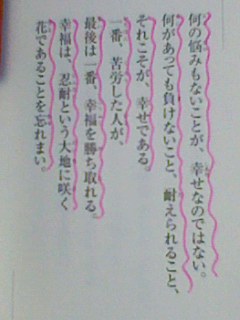 何の悩みもないことが、幸せなのではない。
何があっても負けないこと、耐えられること、
それこそが、幸せである。
一番、苦労した人が、
最後は一番、幸福を勝ち取れる。
幸福は、忍耐という大地に咲く
花であることを忘れまい。